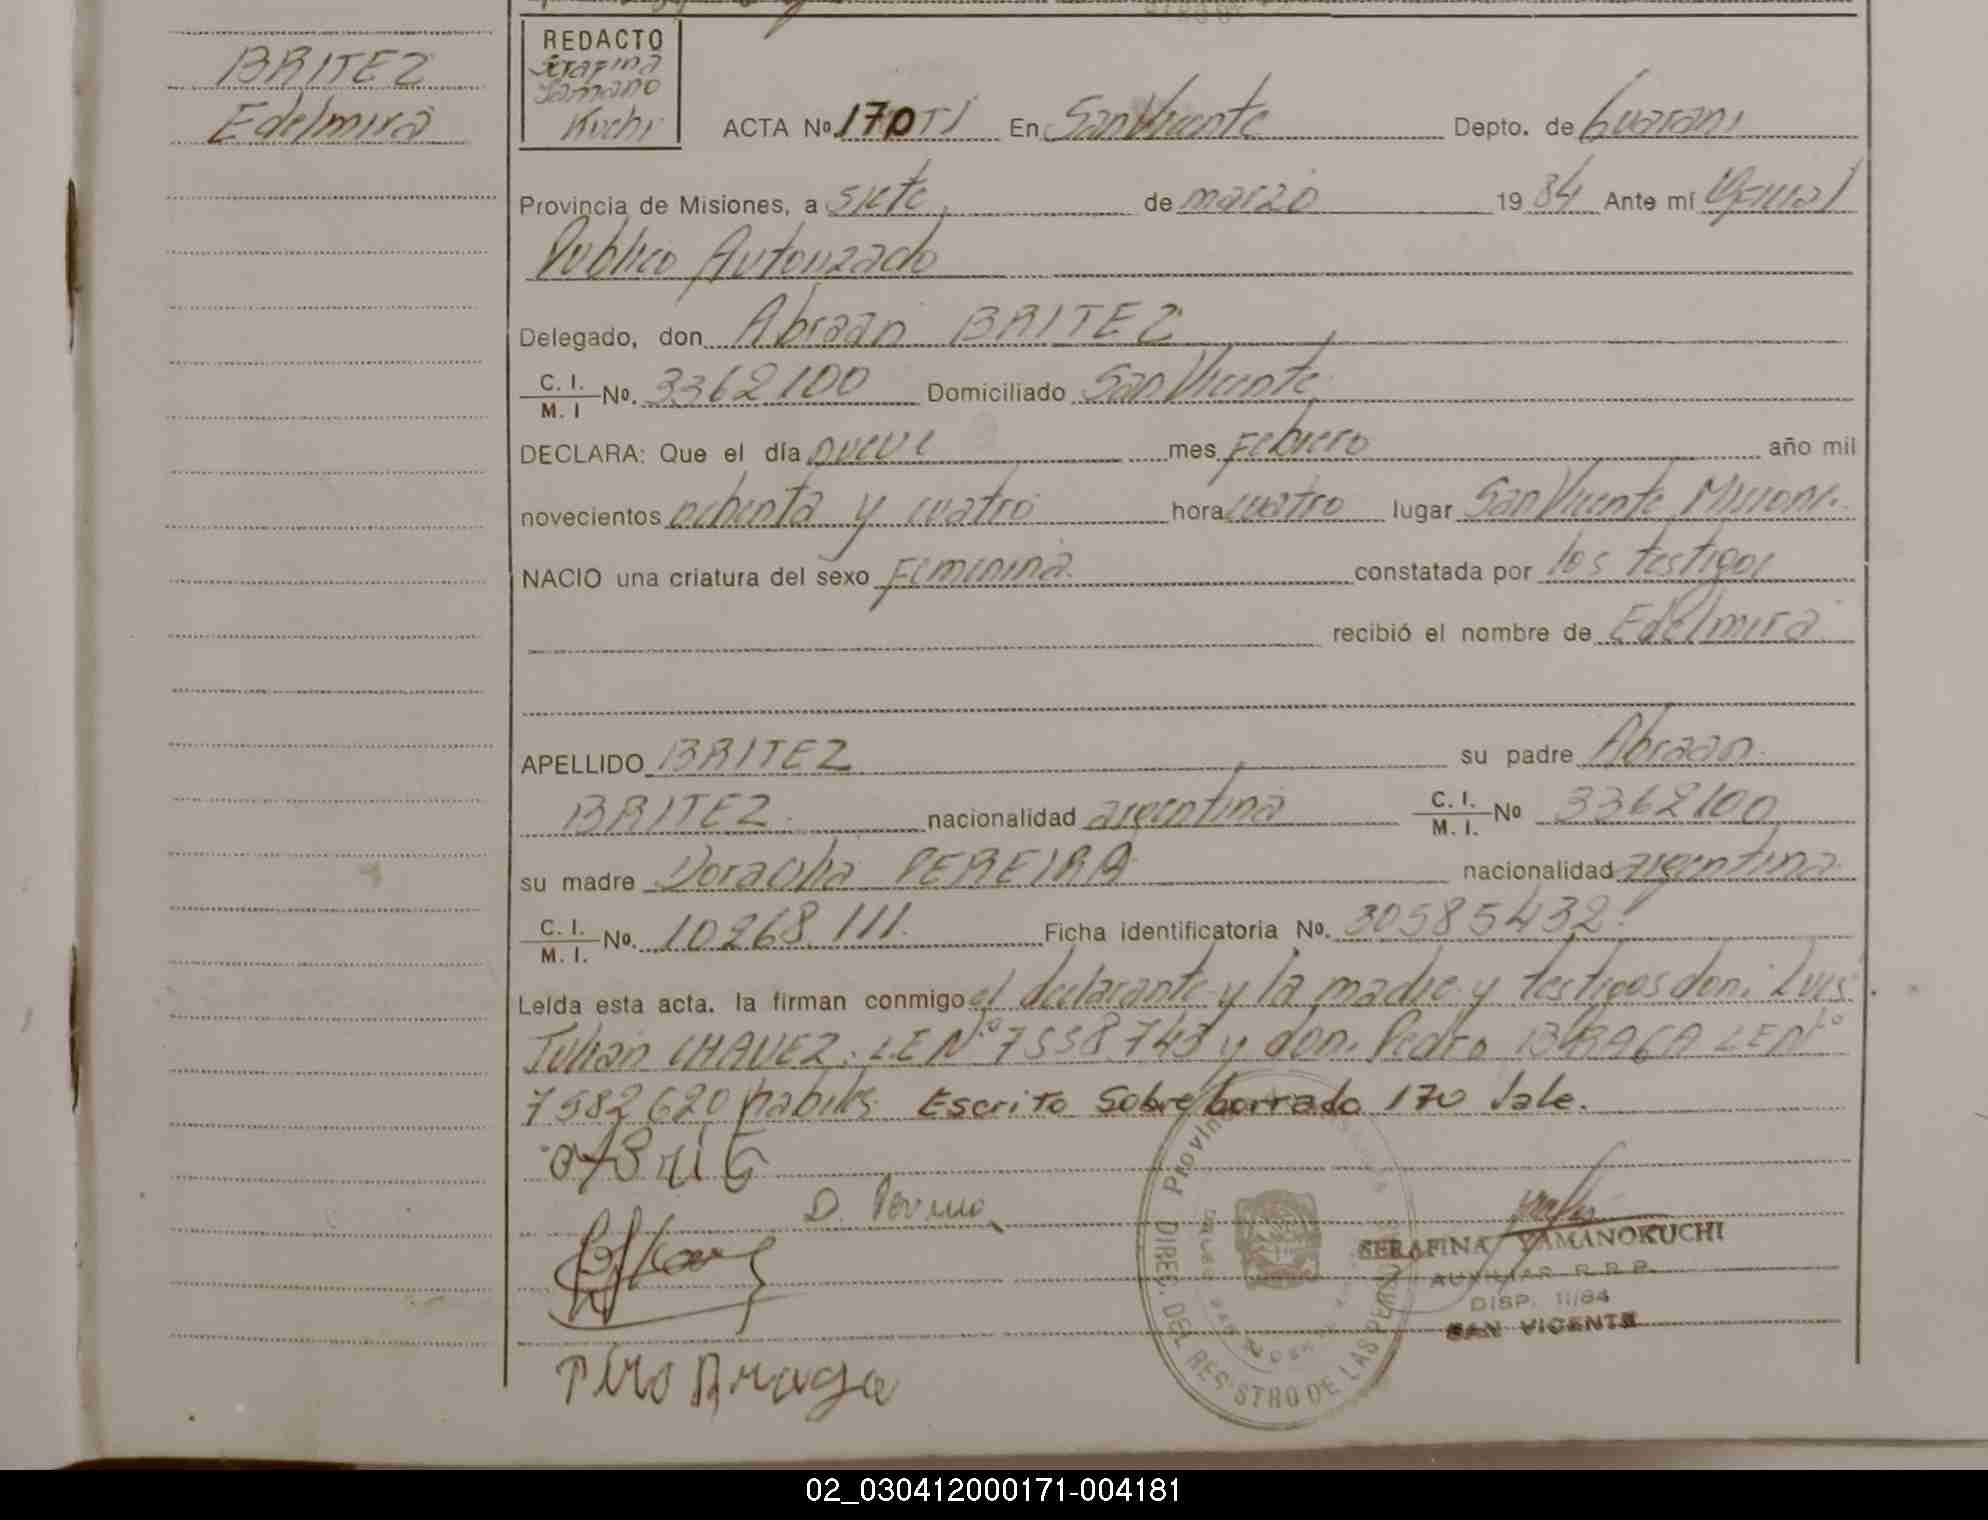 BRITEZ
Edelmira
REDACTO
Serafina
Yamano
Kuchi
ACTA Nº 170 TI En San Vicente Depto. de Guarani
Provincia de Misiones, a siete de marzo 1984 Ante mí Oficial
Publico Autorizado
Delegado, don Abraan BRITEZ
C. I. M. I No. 3362100 Domiciliado San Vicente
DECLARA: Que el día nueve mes Febrero año mil
novecientos ochenta y cuatro hora cuatro lugar San Vicente Misiones
NACIO una criatura del sexo Feminina constatada por los testigos
recibió el nombre de Edelmira
APELLIDO BRITEZ su padre Abraan
BRITEZ nacionalidad argentina C. I. M. I. Nº 3362100
su madre Doracilia PEREIRA nacionalidad argentina
C. I. M. I. No. 10268.111. Ficha identificatoria No. 30585432.
Leída esta acta. la firman conmigo el declarante y la madre y testigos don: Luis
Julian CHAVEZ. LE Nº 7558743 y don. Pedro BRAGA LE Nº
7582620 habiles. Escrito Sobre borrado 170 Vale.
D. Pereira
Braga
Provincia
DIREC. DEL REGISTRO DE LAS PERSONAS
SERAFINA YAMANOKUCHI
AUXILIAR R.R.P.
DISP. 11/84
SAN VICENTE
02_030412000171-004181